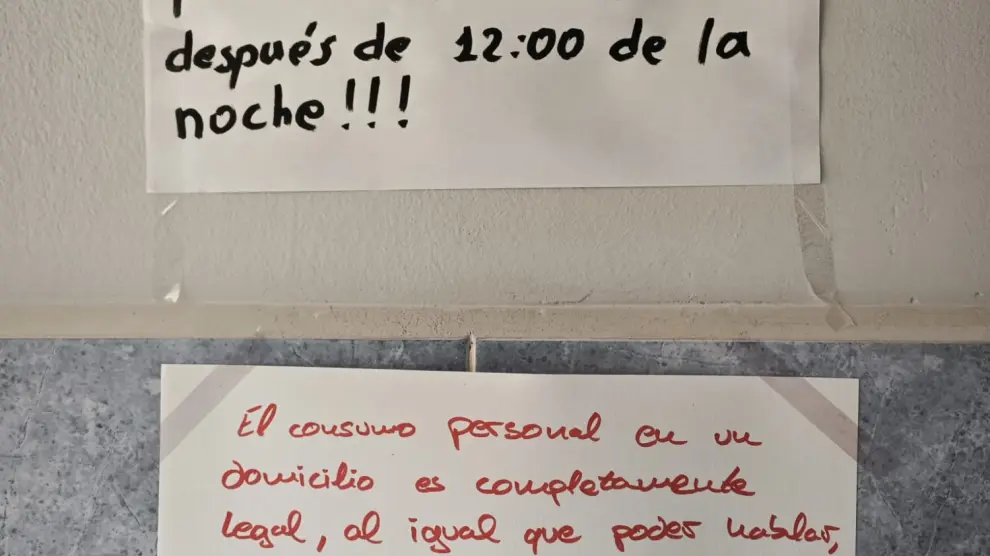 después de 12:00 de la
noche!!!
El consumo personal en un
domicilio es completamente
legal, al igual que poder hablar,